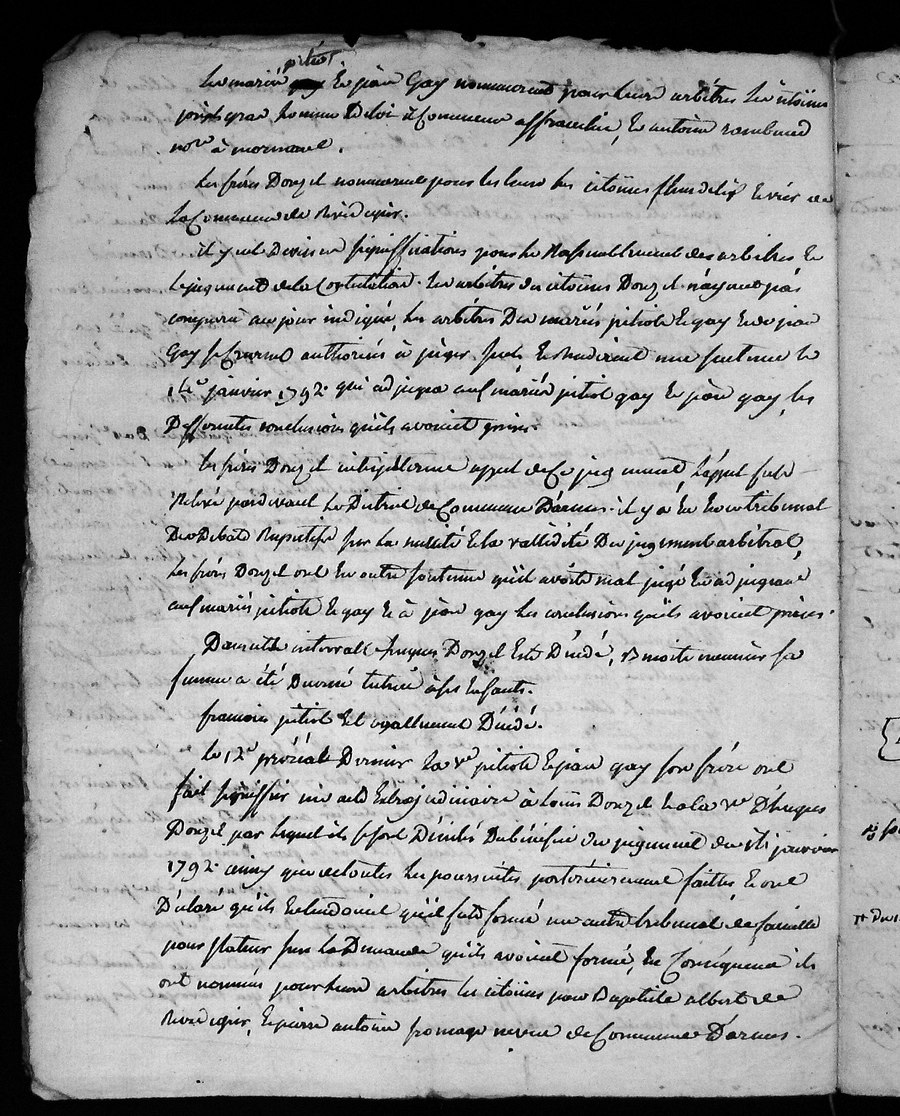 petiot
les mariés et jean Gay nommerent pour leurs arbitres les citoiens
joseph gras homme de loi a Commune affranchie, et antoine rambaud
nore à mornand.
Les freres Donzel nommerent pour les leurs les citoiens fleurdelix et vier de
la Commune de Rivedegier.
il y eut diverses significations pour le Rassemblement des arbitres et
le jugement de la Contestation. les arbitres des citoiens Donzel n'ayant pas
comparu au jour indiqué, les arbitres des mariés petiot et gay et de jean
Gay se crurent authorisés à juger seuls, et rendirent une sentence le
14e janvier 1792. qui adjugea aux mariés petiot gay et jean gay, les
differentes conclusions qu'ils avoient prises.
les freres Donzel interjetterent appel de ce jugement, l'appel fut
relevé pardevant le District de Commune D'armes. il y a eu en ce tribunal
des Debats respectifs sur la nullité et la vallidité du jugement arbitral,
les freres Donzel ont en outre soutenu qu'il avoit mal jugé en adjugeant
aux mariés petiot et gay et à jean gay les conclusions qu'ils avoient prises.
Dans cet intervalle hugues Donzel est Décédé, Benoite meunier sa
femme a été Decernée tutrice à ses Enfants.
francois petiot est egallement Décédé.
le 12e prérial Dernier la ve petiot et jean gay son frere ont
fait signiffier un acte Extrajudiciaire à Louis Donzel et a la ve D'hugues
Donzel par lequel ils se sont Désistés du bénéfice du jugement du 14 janvier
1792. ainsy que de toutes les poursuites postérieurement faittes, et ont
Déclaré qu'ils entendoient qu'il fut formé un autre tribunal de famille
pour statuer sur la Demande qu'ils avoient formé, en Conséquence ils
ont nommés pour leurs arbitres les citoiens jean Baptiste albert de
Rivedegier, et pierre antoine fromage neveu de Commune D'armes.